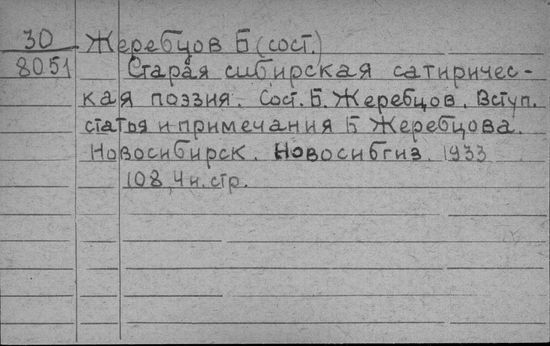 30 Жеребцов Б (сост.)
8051 Старая сибирская сатиричес-
кая поэзия. Сост. Б. Жеребцов. Вступ.
статья и примечания Б Жеребцова.
Новосибирск. Новосибгиз. 1933
108, 4 н. стр.